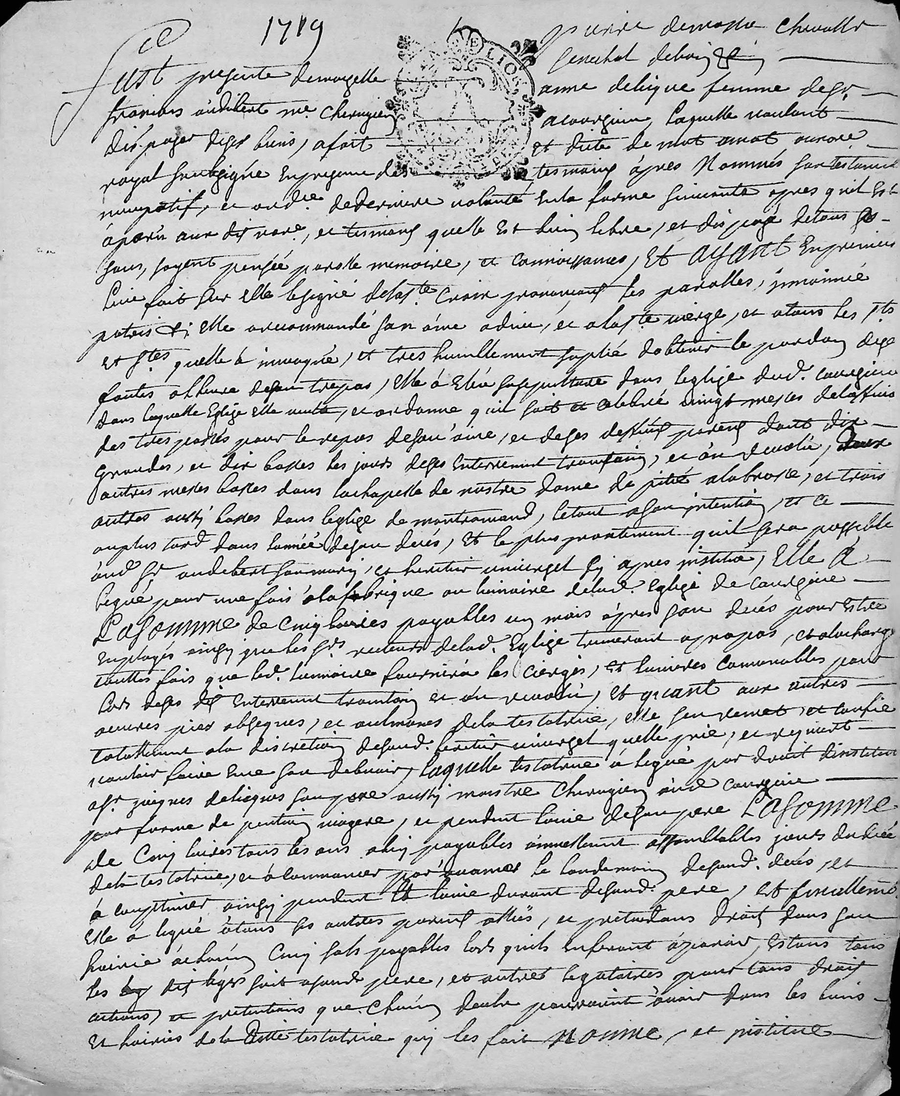 1719
pierre demasso chevallier
senechal de
Fust presente demoyzelle anne delique femme de sr.
francois audibert me chirurgien a courzieu, laquelle voulant
disposer de ses biens, a fait et dicté de mot a mot au notaire
royal soubsigné en presence des tesmoins apres nommés son testament
nuncupatif, et ordre. de derniere volonté en la forme suivante apres quil est
aparu aux dit notre. et tesmoins quelle est bien libre, et dispose de tous ses
sens, ferme pensée parolle memoire, et connoissance, Et ayant En premier
lieu fait sur elle le signe de la ste. Croix prononcant les parolles, in nomine
patris &; elle a recommandé son ame a dieu, et a la ste vierge, et a tous les sts
et stes. quelle a invoqué, et tres humblement suplié dobtenir le pardon de ses
fautes a lheure de son trepas, elle a eleu sa sepulture dans leglise dud. courzieu
dans laquelle Eglise elle veult, et ordonne quil soit celebré vingt messes
des tres passés pour le repos de son ame, et de ses deffunts parens dont dix
grandes, et dix basses les jours de ses enterrement trentain, et an revolu,
autres messes basses dans la chapelle de nostre dame de pitié a labrosse, et trois
autres aussy basses dans leglise de montromand, le tout a son intention, et ce
au plus tard dans lannée de son deces, Et le plus promtement quil sera possible
aud sr audibert son mary, et heritier universel cy apres institué, Elle a
legué pour une fois a la fabrique ou luminaire de lad. Eglise de courzieu
La somme de cinq livres payables un mois apres son deces pour Estre
employés ainsy que les srs recteurs de lad. Eglise trouveront a propos, et a la charge
touttes fois que led. luminaire fournira les cierges, et lumieres convenables pour
lors de ses enterrement trentain et an revolu, Et quant aux autres
oeuvres pies obseques, et aulmones de la testatrice, elle sen remet, et confie
totallement a la discretion de sond. heritier universel quelle prie, et requiert
vouloir faire en son debvoir, laquelle testatrice a legué par droit dinstitution
a sr. jacques delique son pere aussy maistre chirurgien aud courzieu
par forme de pention viagere, et pendant la vie de son pere La somme
de Cinq livres tous les ans a luy payables annuellement a semblables jours du deces
de la testatrice, et a commancer par avance le landemain desond. deces, et
a continuer ainsy pendant la vie durant desond. pere, Et finallement
Elle a legué a tous ses autres parens alliés, et pretendans droit dans son
hoirie a chacun Cinq sols payables lors quils en feront aparoir, Estans tous
les dits legs fait a sond pere, et autres legataires pour tous droits
actions, et pretentions que chacun deulx pourroient avoir dans les biens
Et hoiries de la dite testatrice qui les fait Nomme, et institue